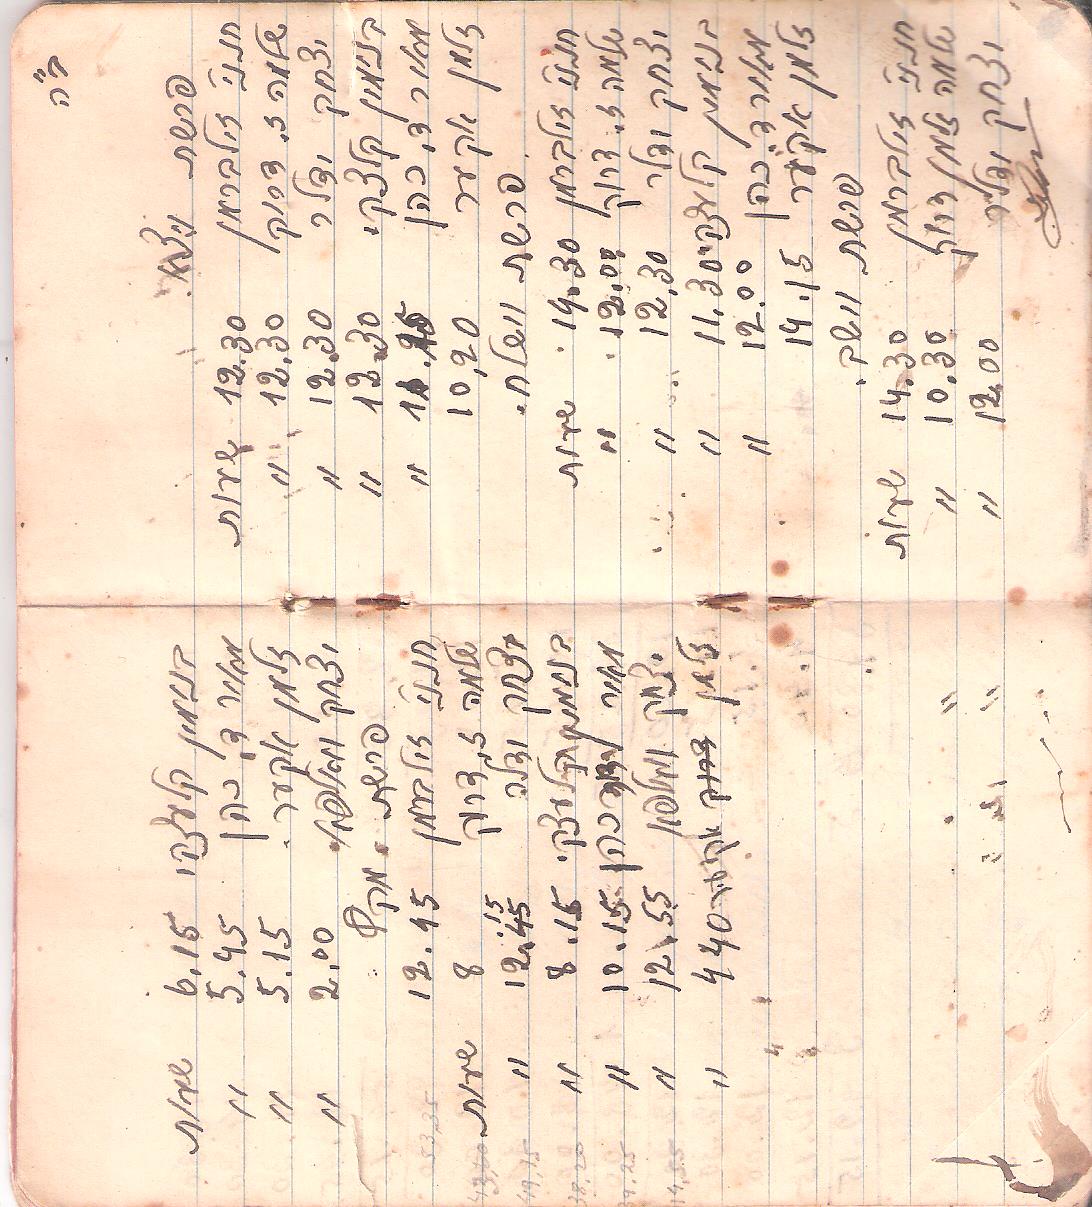 ב"ה
פרשת ויצא.
חנני' זילברמן 12.30 שעות
שלמה ז. דרוק 12.30 "
יצחק ודלר 12.30 "
בנימין קלצקי 12.30 "
מאיר ד. כהן "
זלמן אקער 10,20
פרשת וישלח.
חנני' זילברמן 14.30 שעות
שלמה ז. דרוק 12.00 "
יצחק ודלר 12,30 "
בנימין קלעצקי 11.30 "
מאיר ד. כהן 12.00 "
זלמן אקער 14.15
פרשת וישב.
חנני' זילברמן 14.30 שעות
שלמה זלמן דרוק 10.30 "
יצחק ודלר 12.00 "
בנימין קלעצקי 6.15 שעות
מאיר ד. כהן 5.45 "
זלמן אקער 5.15 "
יצחק וואלפא 2.00 "
פרשת מקץ
חנני' זילברמן 12.45
שלמה ז. דרוק 8.15 שעות
יצחק ודלר 12.45 "
בנימין קלעצקי 8.15 "
מאיר דוד כהן 10.15 "
יצחק וואלפא 12.55 "
זלמן דרוק אקער 4 40 "